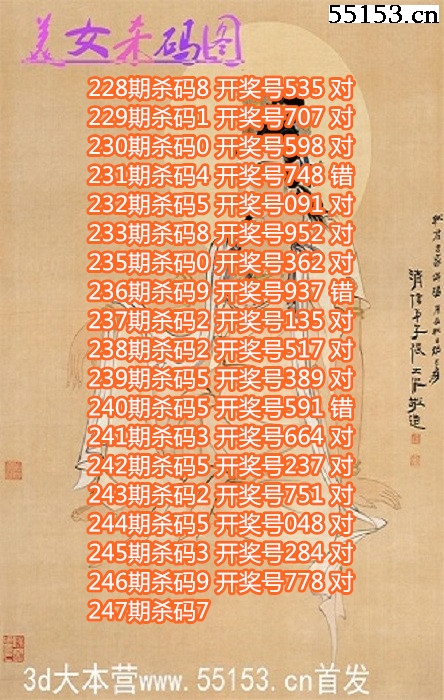 55153.cn
美女杀码图
228期杀码8 开奖号535 对
229期杀码1 开奖号707 对
230期杀码0 开奖号598 对
231期杀码4 开奖号748 错
232期杀码5 开奖号091 对
233期杀码8 开奖号952 对
235期杀码0 开奖号362 对
236期杀码9 开奖号937 错
237期杀码2 开奖号135 对
238期杀码2 开奖号517 对
239期杀码5 开奖号389 对
240期杀码5 开奖号591 错
241期杀码3 开奖号664 对
242期杀码5 开奖号237 对
243期杀码2 开奖号751 对
244期杀码5 开奖号048 对
245期杀码3 开奖号284 对
246期杀码9 开奖号778 对
247期杀码7
3d大本营www.55153.cn首发